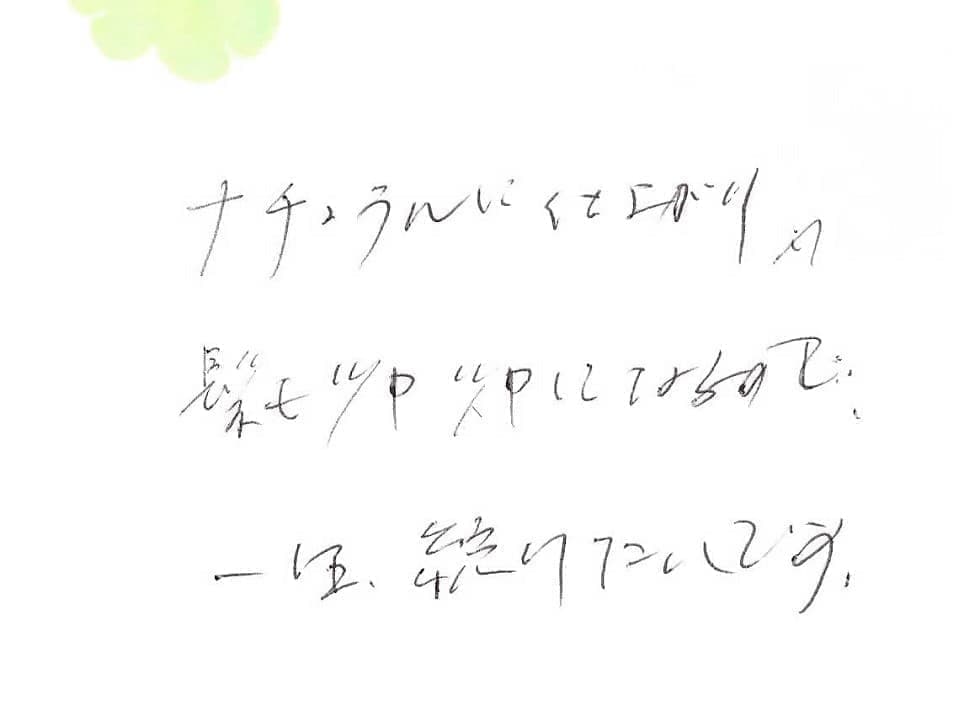 ナチュラルに仕上がり
髪もツヤツヤになるので、
一生、続けたいです。